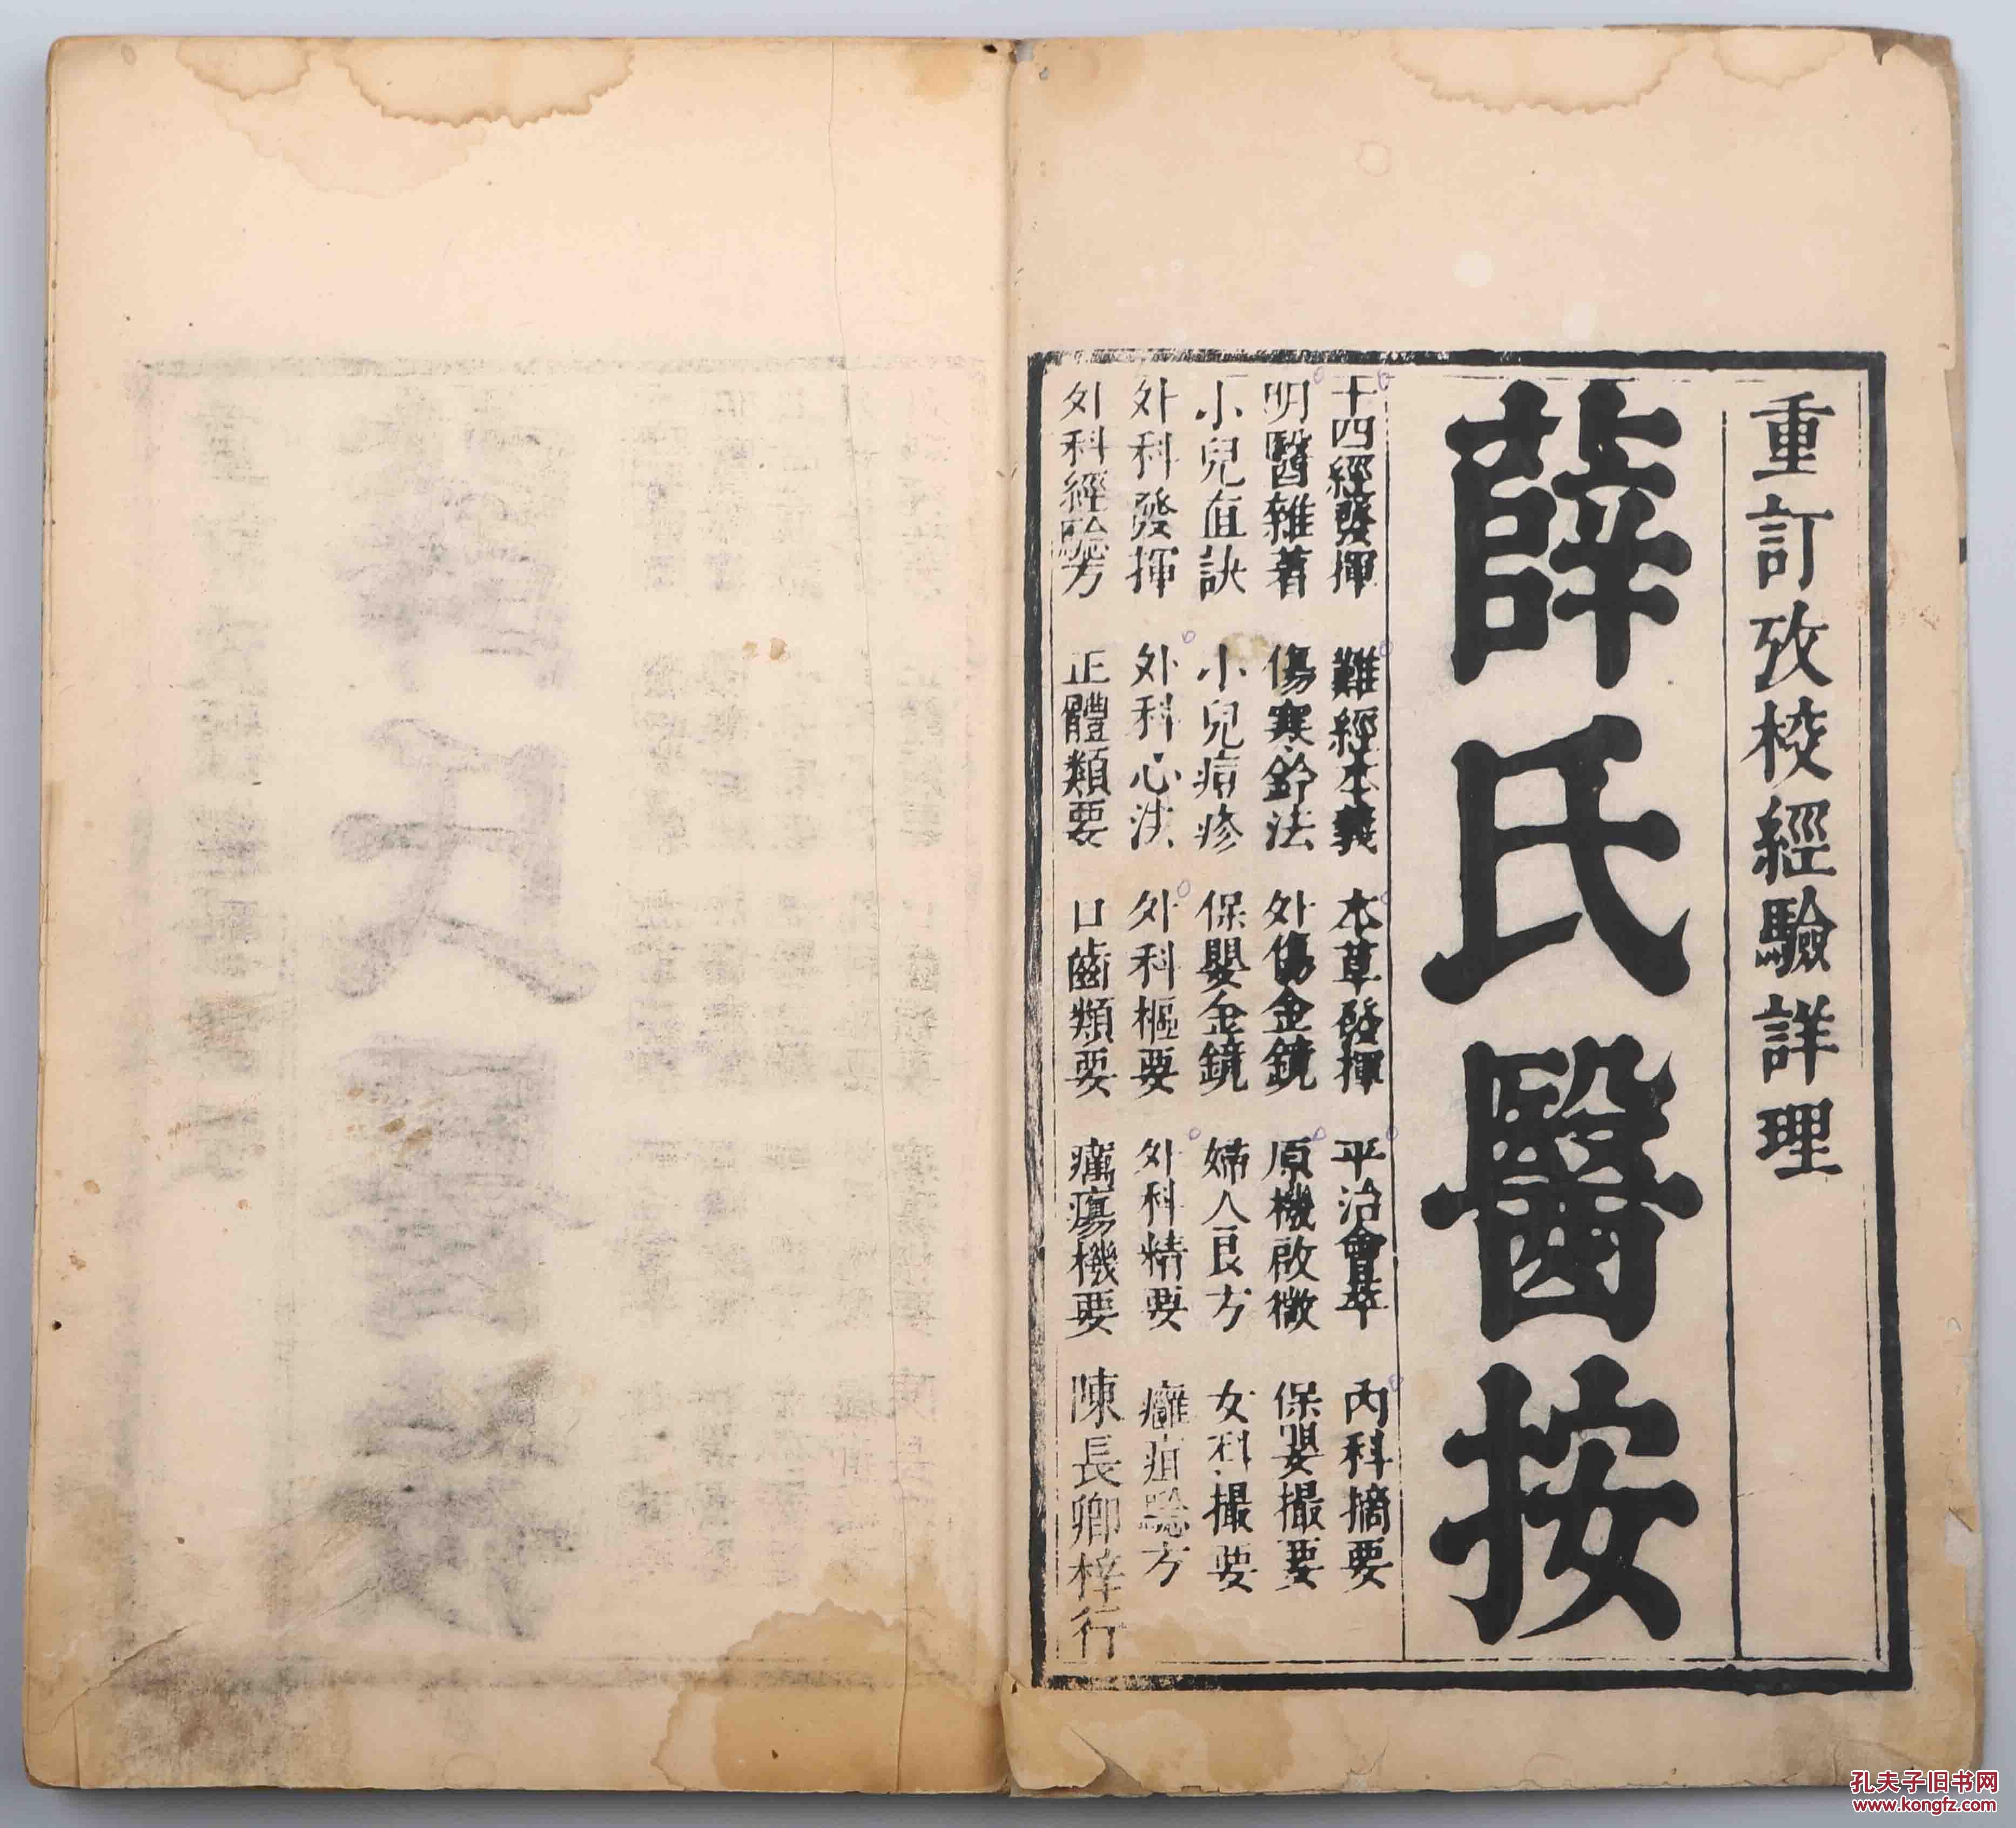 重訂攷校經驗詳理
薛氏醫按
十四經發揮 難經本義 本草發揮 平治會萃 內科摘要
明醫雜著 傷寒鈐法 外傷金鏡 原機啟微 保嬰撮要
小兒直訣 小兒痘疹 保嬰金鏡 婦人良方 女科撮要
外科發揮 外科心法 外科樞要 外科精要 癰疽驗方
外科經驗方 正體類要 口齒類要 癘瘍機要 陳長卿梓行
孔夫子旧书网
www.kongfz.com